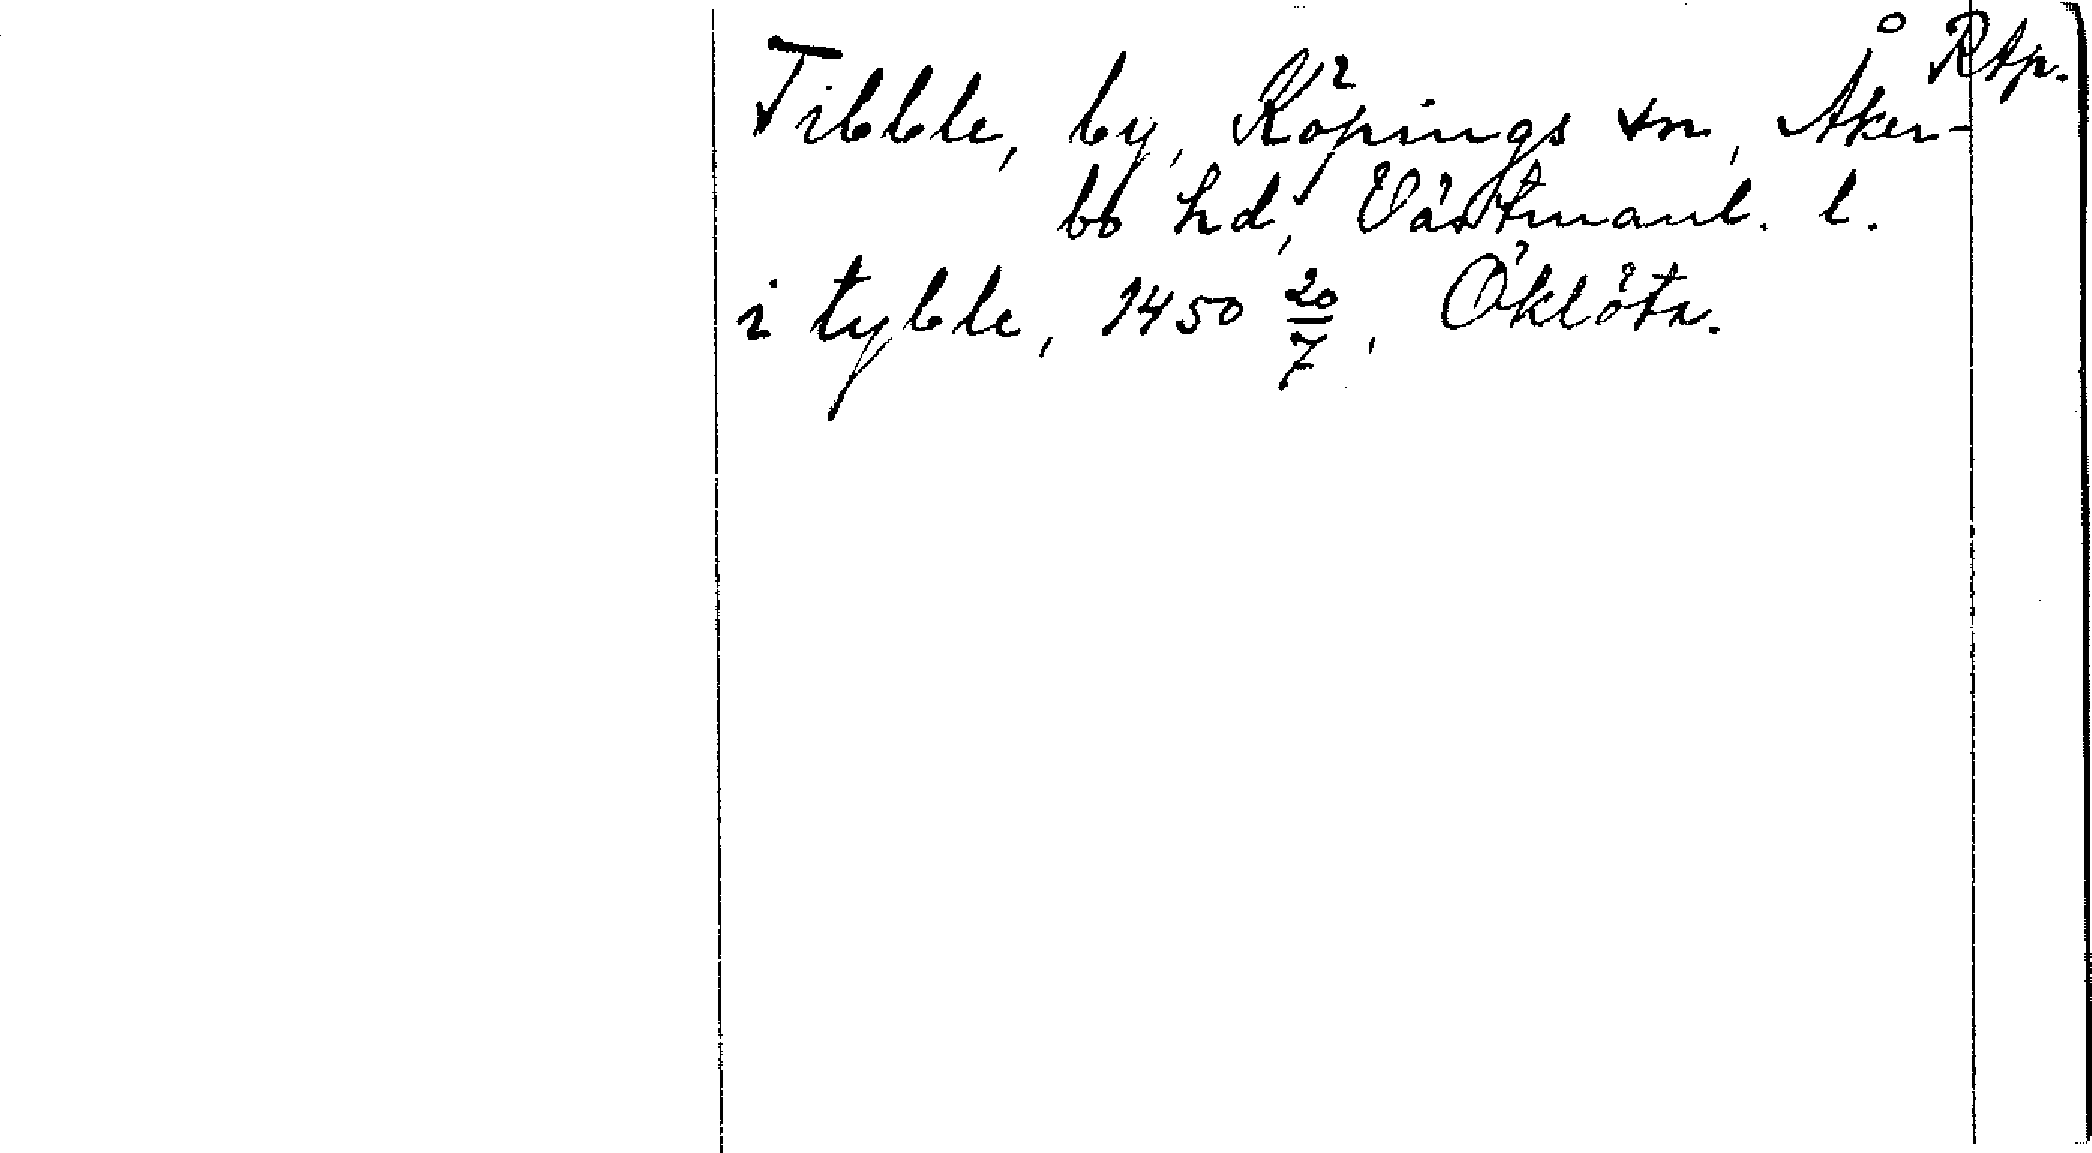 RAp.
Tibble, by, Köpings sn, Åker-
bo hd, Västmanl. l.
i tyble, 1450 20/7, Öklösta.